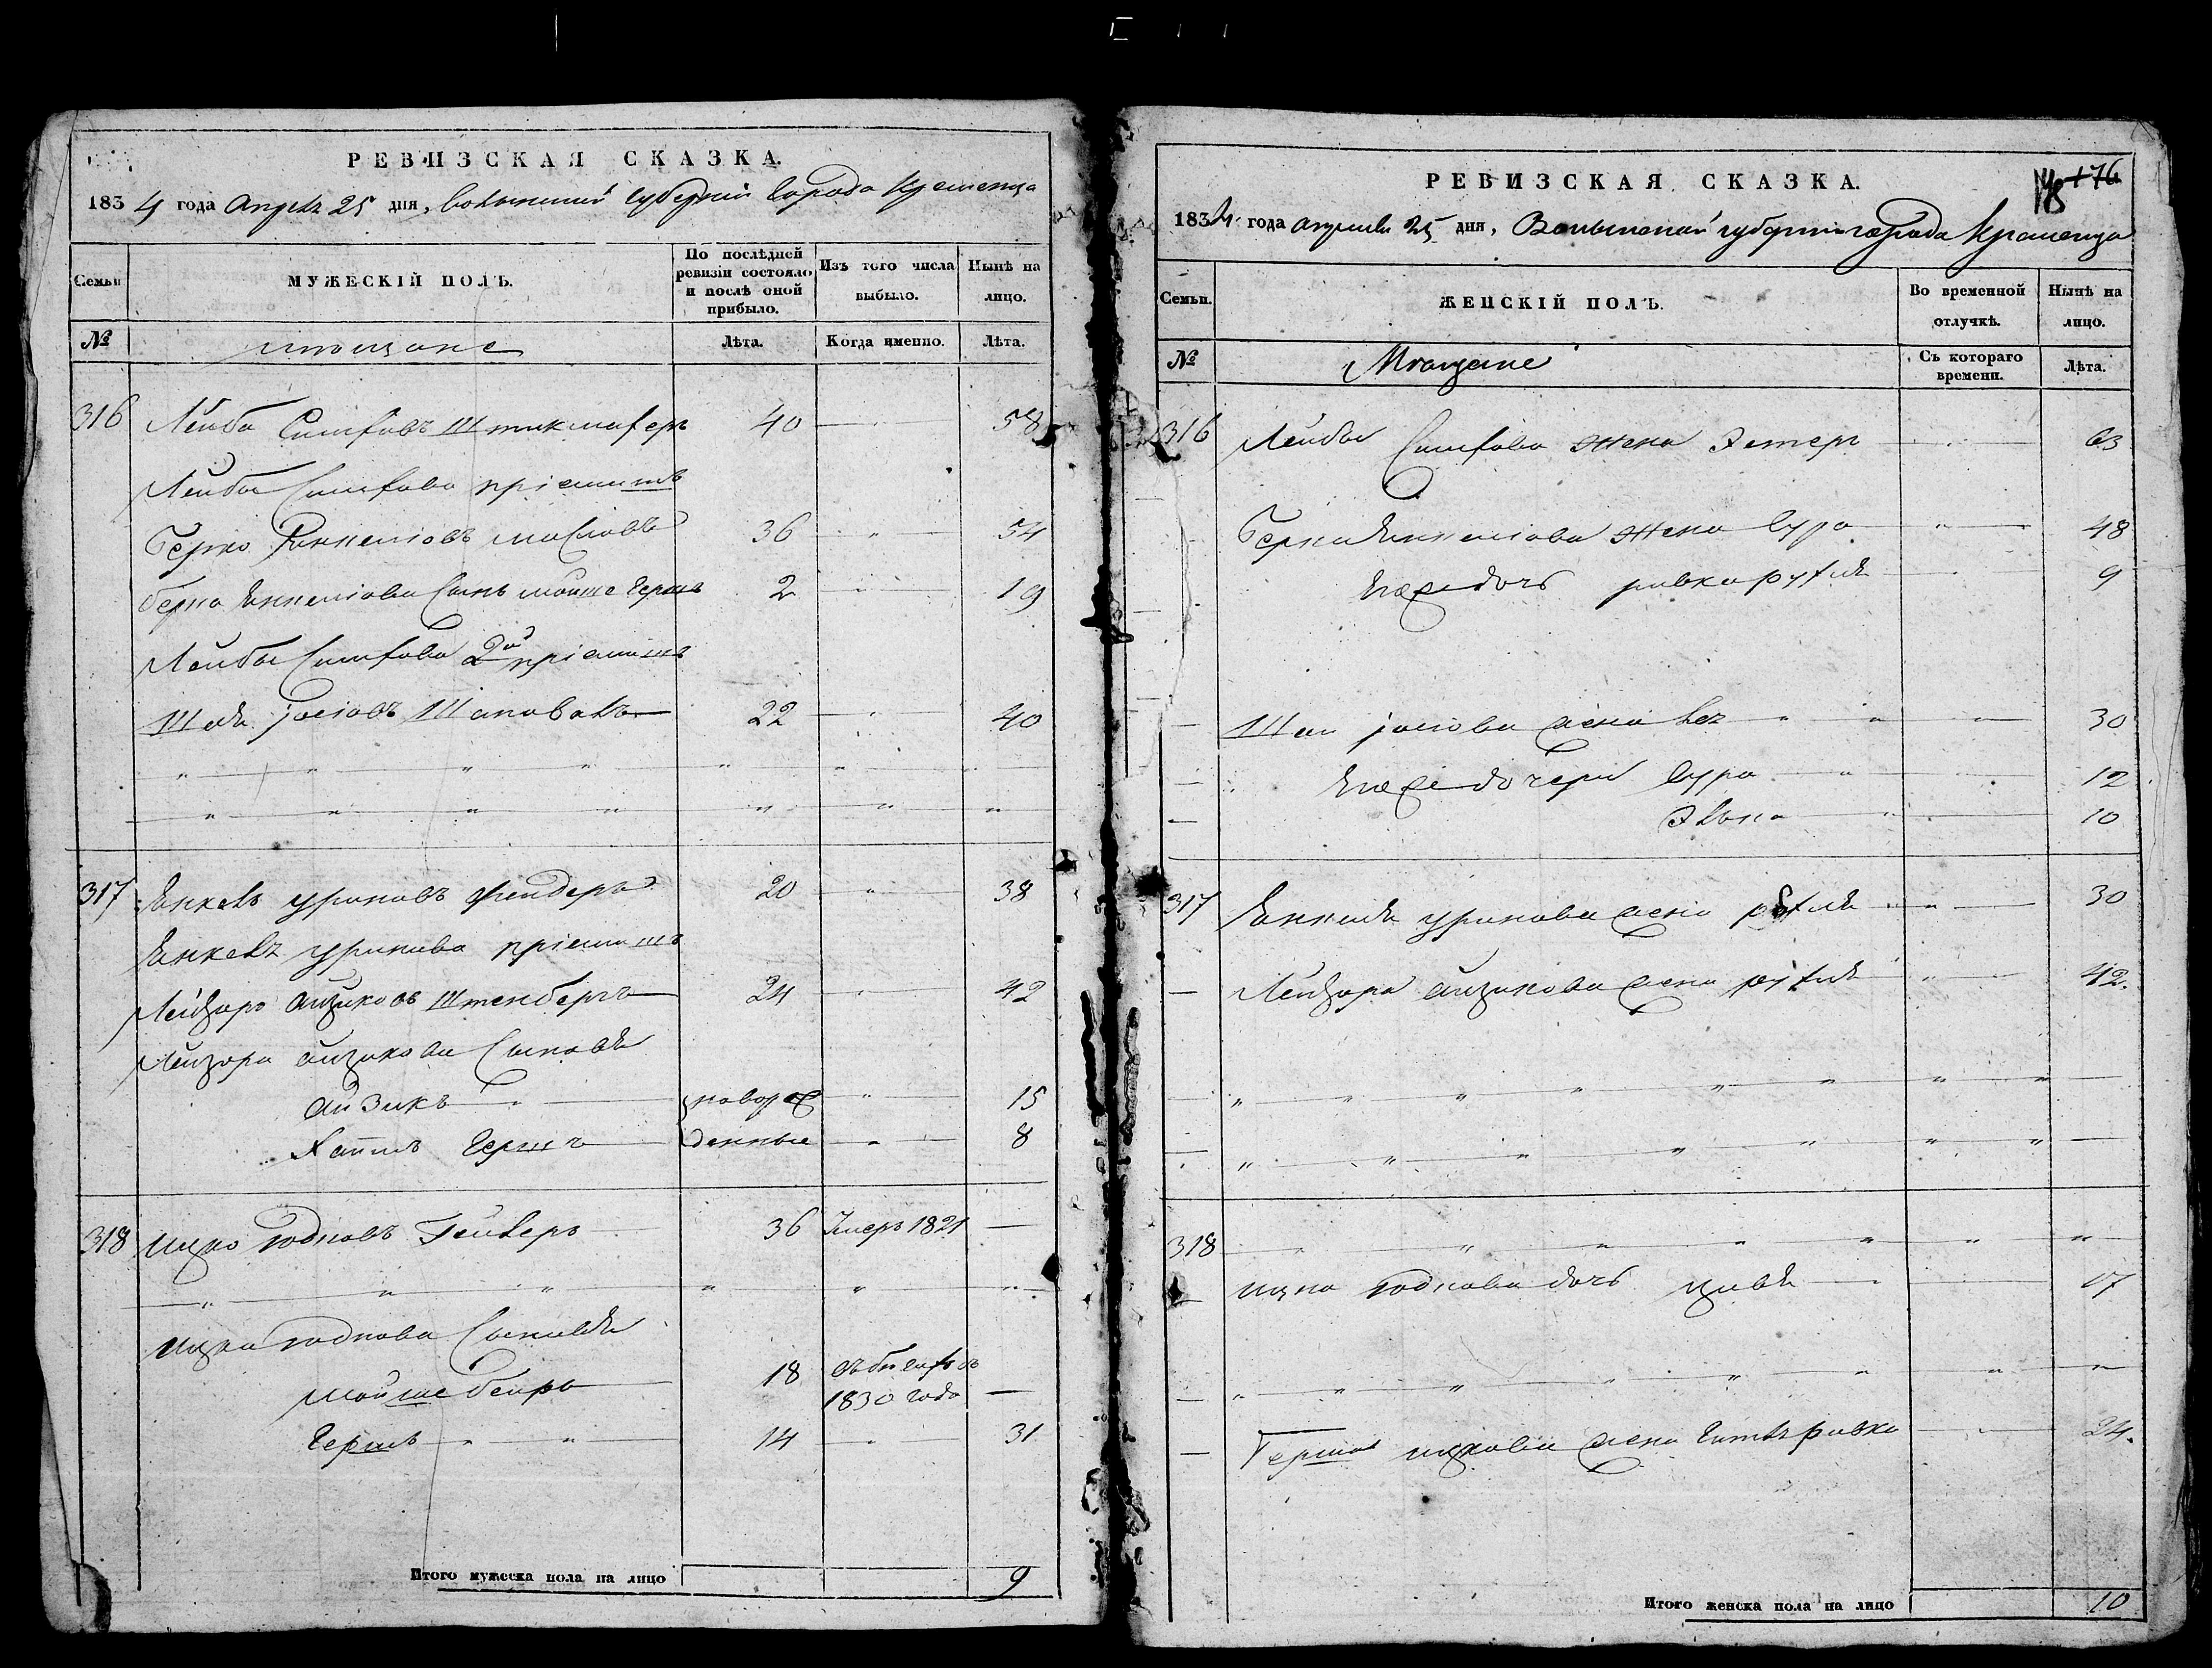 РЕВИЗСКАЯ СКАЗКА.
1834 года Апреля 25 дня, Волынской Губернии Города Кременца
Семьи
МУЖЕСКІЙ ПОЛЪ.
По послѣдней ревизіи состояло и послѣ оной прибыло.
Изъ того числа выбыло.
Нынѣ на лицо.
№
мещане
Лѣта.
Когда именно.
Лѣта.
316 Лейба Симховъ 40 58
Лейбы Симхова пріемышъ
Берко Янкеліовъ 36 54
берка Янкеліова Сынъ мойше Гершъ 2 19
Лейбы Симхова 2й пріемышъ
Шая іосіовъ Шаповалъ 22 40
317 Янкель уриновъ 20 38
Янкеля уринова пріемышъ
Лейзоръ айзиковъ Штенбергъ 24 42
Лейзора айзикова Сыновья
айзикъ новорож 15
Хаимъ Гершъ денные 8
318 ицко юдковъ 36 Умеръ 1821 —
ицка юдкова Сыновья
мойше беиръ 18 1830 года —
Гершъ 14 31
Итого мужеска пола на лицо 9
РЕВИЗСКАЯ СКАЗКА.
176
1834 года апреля 25 дня, Волынской губернии города Кременца
Семьи.
ЖЕНСКІЙ ПОЛЪ.
Во временной отлучкѣ.
Нынѣ на лицо.
№
Мещане
Съ котораго времени.
Лѣта.
316 Лейбы Симхова жена Эстеръ 63
Берка Янкеліова жена Сура 48
Его дочь ривка рухля 9
Шаи іосіова жена 30
Его дочери Сура 12
10
317 Янкеля уринова жена рухля 30
Лейзора айзикова жена рухля 42.
318
ицка юдкова дочь цивья 17
Герша ицкова жена Гитля ривка 24.
Итого женска пола на лицо 10